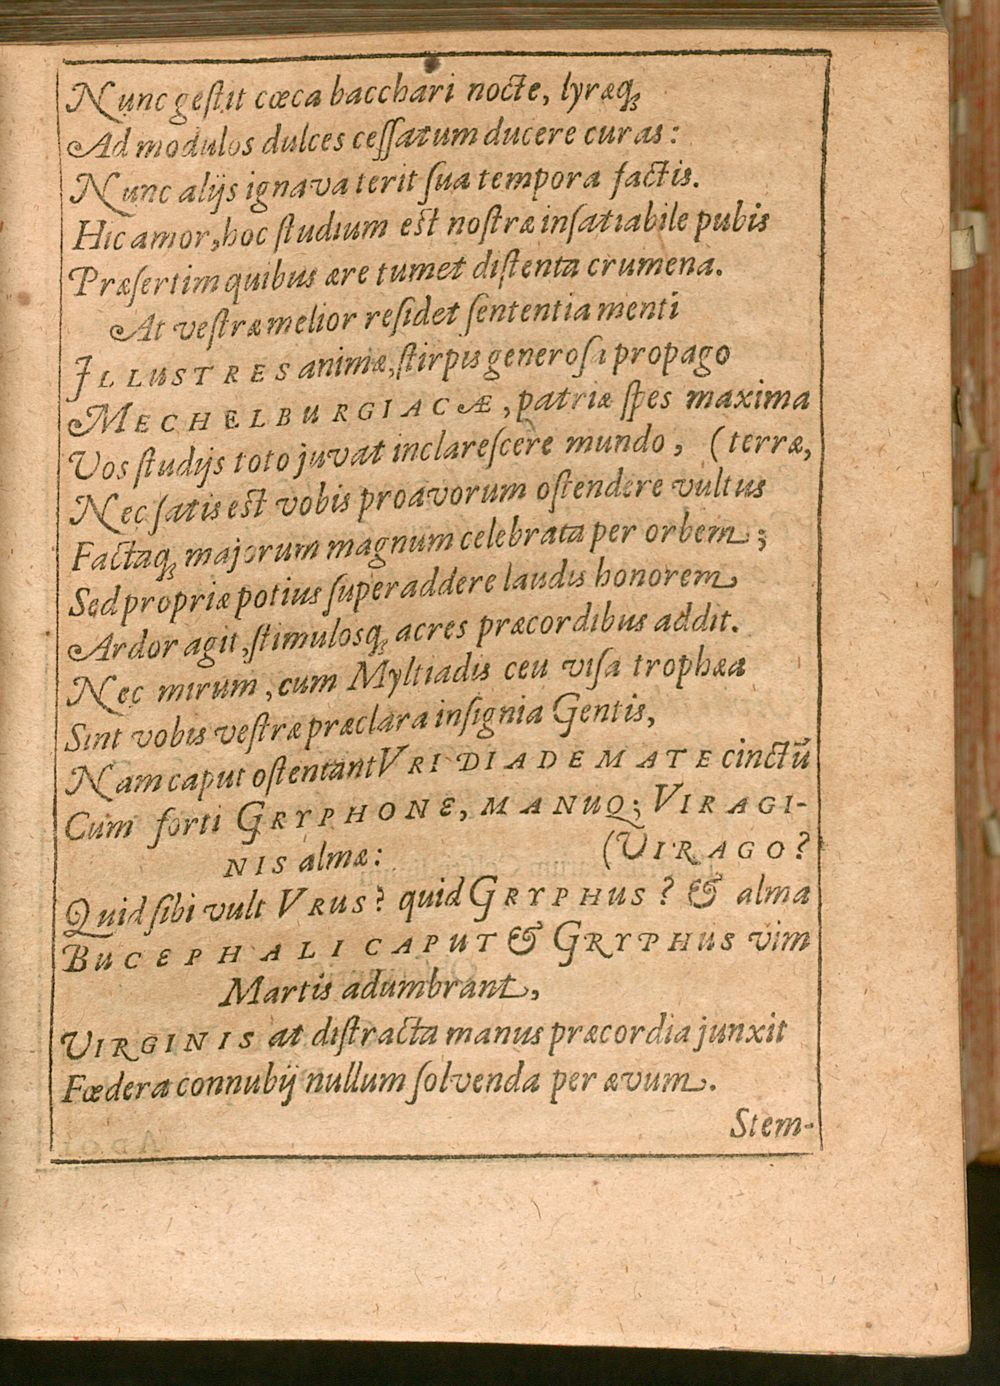 Nunc gestit cœca bacchari nocte, lyræq;
Ad modulos dulces cessatum ducere curas:
Nunc alijs ignava terit sua tempora factis.
Hic amor, hoc studium est nostræ insatiabile pubis
Præsertim quibus ære tumet distenta crumena.
At vestræ melior residet sententia menti
ILLUSTRES animæ, stirpis generosa propago
MECHELBURGIACÆ, patriæ spes maxima
Vos studijs toto juvat inclarescere mundo, (terræ,
Nec satis est vobis proavorum ostendere vultus
Factaq; majorum magnum celebrata per orbem;
Sed propriæ potius superaddere laudis honorem
Ardor agit, stimulosq; acres præcordibus addit.
Nec mirum, cum Myltiadis ceu visa trophæa
Sint vobis vestræ præclara insignia Gentis,
Nam caput ostentant VRI DIADEMATE cinctū
Cum forti GRYPHONE, MANUQ; VIRAGI-
NIS almæ: (VIRAGO?
Quid sibi vult VRUS? quid GRYPHUS? & alma
BUCEPHALI CAPUT & GRYPHUS vim
Martis adumbrant,
VIRGINIS at distracta manus præcordia junxit
Fœdera connubij nullum solvenda per ævum.
Stem-